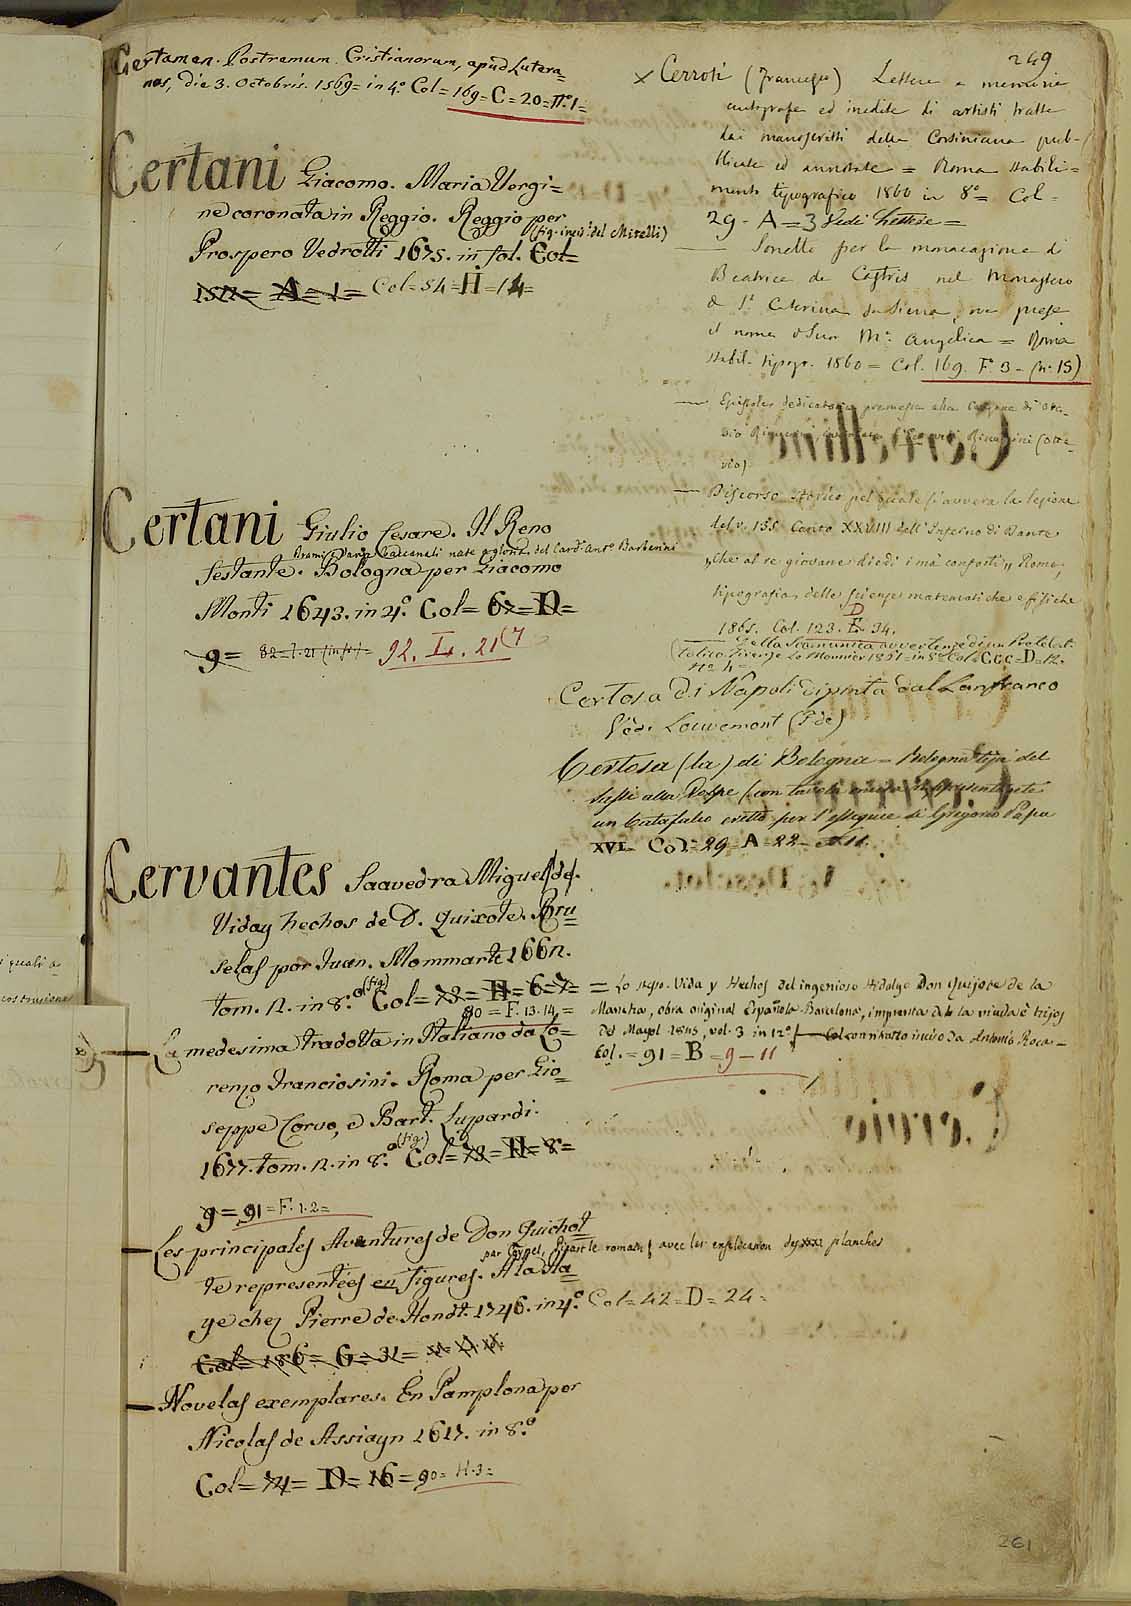 Certamen Postremum Cristianorum, apud Lutera=
nos, die 3. Octobris. 1569= in 4.º Col= 169= C= 20= N.º 1=
Certani Giacomo. Maria Vergi=
ne coronata in Reggio. Reggio per
(fig. incis: del Mitelli)
Prospero Vedrotti 1675. in fol. Col=
A= 1= Col= 54= H= 14=
Certani Giulio Cesare. Il Reno
nate a glor. del Card. Ant.º Barberini
festante. Bologna per Giacomo
Monti 1643. in 4.º Col= 67= D=
9= 82= I. 21 92. L. 21 (7
Cervantes Saavedra Miguel de.
Vida y hechos de D. Quixote. Bru=
selas por Juan. Mommarte 1662.
tom. 2. in 8.º (fig.) Col= 73= H= 6= 7=
90= F. 13. 14.=
La medesima tradotta in Italiano da Lo=
renzo Franciosini. Roma per Gio=
seppe Corvo, e Bart. Lupardi.
1677. tom. 2. in 8.º (fig.) Col= 73= H= 8=
9= 91= F. 1. 2=
Les principales Aventures de Don Quichot
par Coypel, Picart le romain avec les explication des xxxi planches
te representées en figures. A la Ha=
ye chez Pierre de Hondt. 1746. in 4.º Col= 42= D= 24=
Col= 186= G= 31=
Novelas exemplares. En Pamplona por
Nicolas de Assiayn 1617. in 8.º
Col= 74= D= 16= 90= H. 3=
249
× Cerroti (Francesco) Lettere e memorie
autografe ed inedite di artisti tratte
dai manoscritti della Corsiniana pub=
blicate ed annotate = Roma stabili=
mento tipografico 1860 in 8º= Col=
29= A= 3 Vedi Lettere=
Sonetto per la monacazione di
Beatrice de Castris nel Monastero
di S.ª Caterina da Siena, ove prese
il nome di Suor M.ª Angelica = Roma
stabil. tipogr. 1860= Col. 169. F 3= (n. 15)
Epistola dedicatoria premessa alla
Discorso storico pel quale s'avvera la lezione
del v. 135 Canto XXVIII dell'Inferno di Dante
"Che al re giovane diedi i ma' conforti" Roma,
tipografia delle scienze matematiche e fisiche
D
1865. Col. 123. E. 34.
Della Scomunica avvertenze di un Prete Cat=
tolico. Firenze Le Monnier in 8º Col= CCC= D= 12.
Nº 4=
Certosa di Napoli dipinta dal Lanfranco
Ved. Louvemont (P. de)
Certosa (la) di Bologna = Bologna tipi del
Sassi alla Volpe (con tavola incisa rappresentante
un Catafalco eretto per l'esequie di Gregorio Papa
XVI= Col= 29= A= 22=
= Lo stesso. Vida y Hechos del ingenioso Hidalgo Don Quijote de la
Mancha, obra original Española Barcelona, imprenta de la viuda è hijos
de Mayol 1845, vol. 3 in 12º con ritratto inciso da Antonio Roca=
Col.= 91= B= 9= 11
261